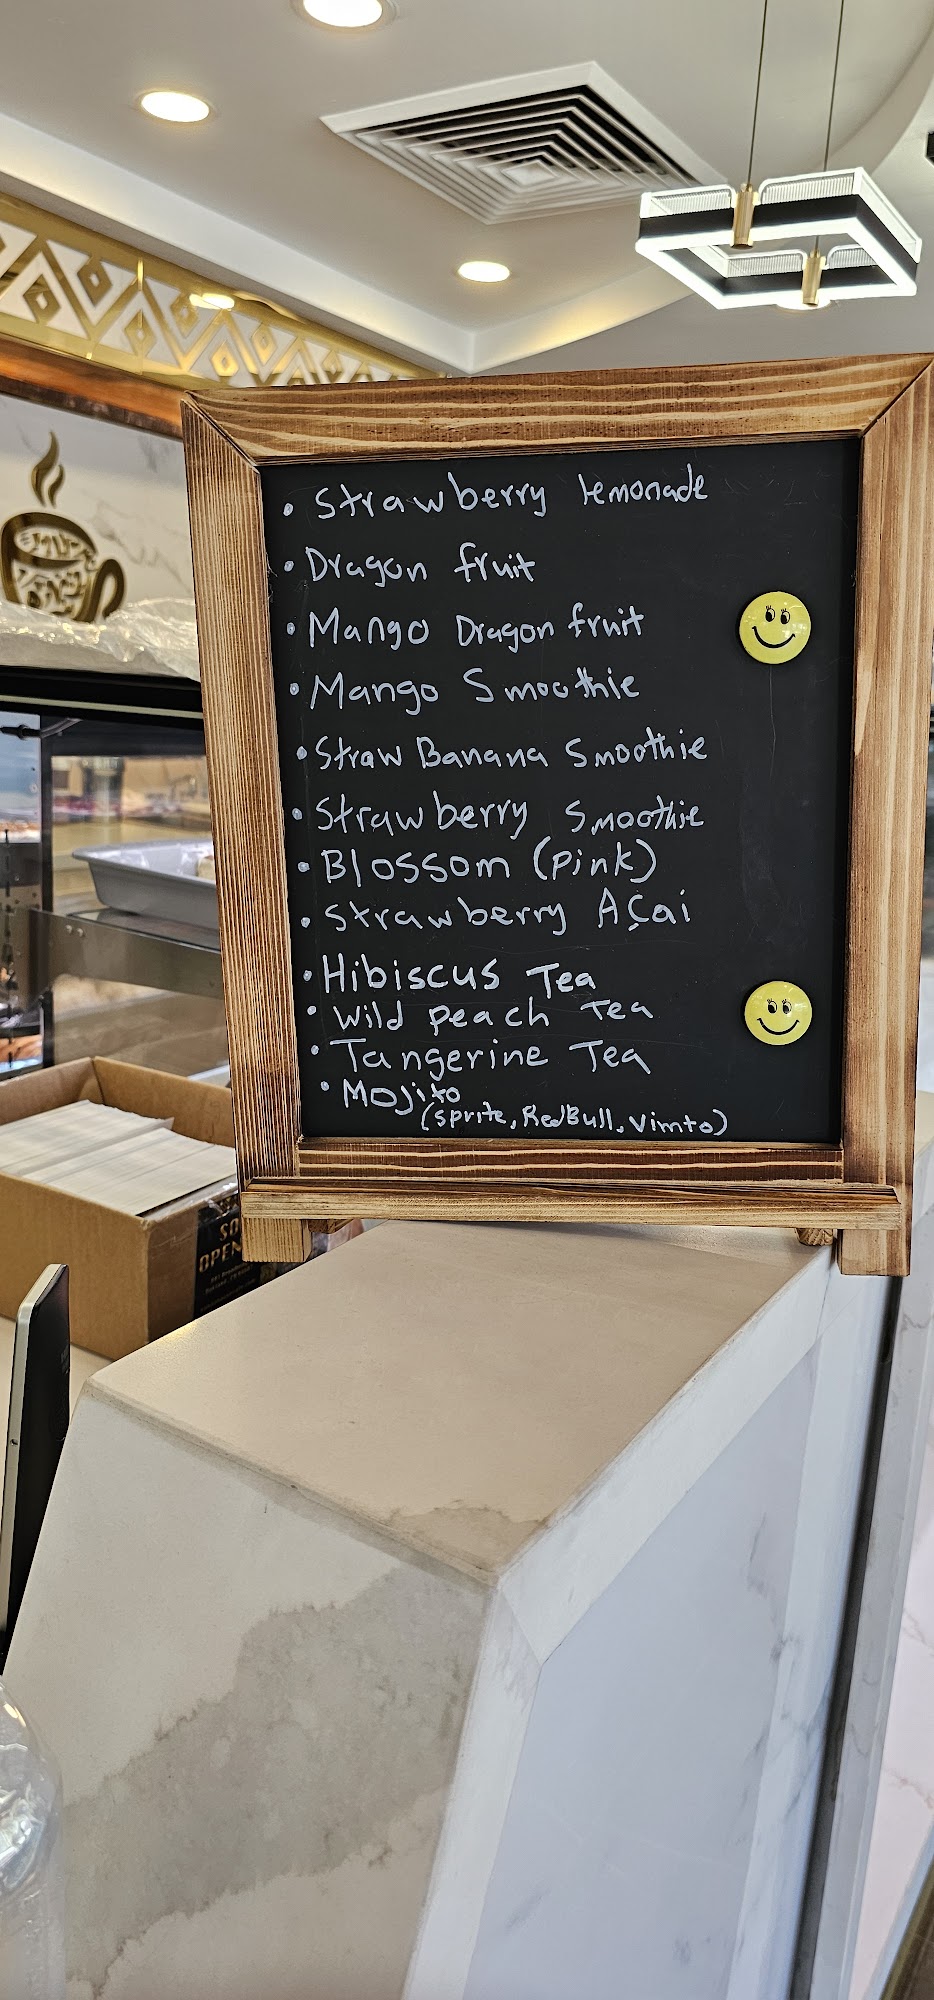 • Strawberry lemonade
• Dragon fruit
• Mango Dragon fruit
• Mango Smoothie
• Straw Banana Smoothie
• Strawberry Smoothie
• Blossom (pink)
• Strawberry Açai
• Hibiscus Tea
• Wild peach Tea
• Tangerine Tea
• Mojito
(sprite, RedBull, Vimto)
SO
OPEN